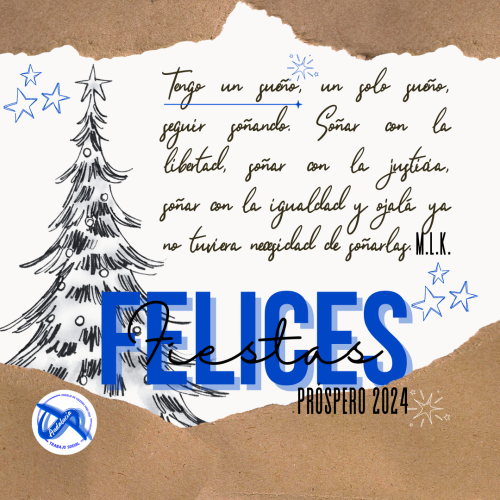 Tengo un sueño, un solo sueño,
seguir soñando. Soñar con la
libertad, soñar con la justicia,
soñar con la igualdad y ojalá ya
no tuviera necesidad de soñarlas. M.L.K.
FELICES
Fiestas
PRÓSPERO 2024
Andalucía
TRABAJO SOCIAL